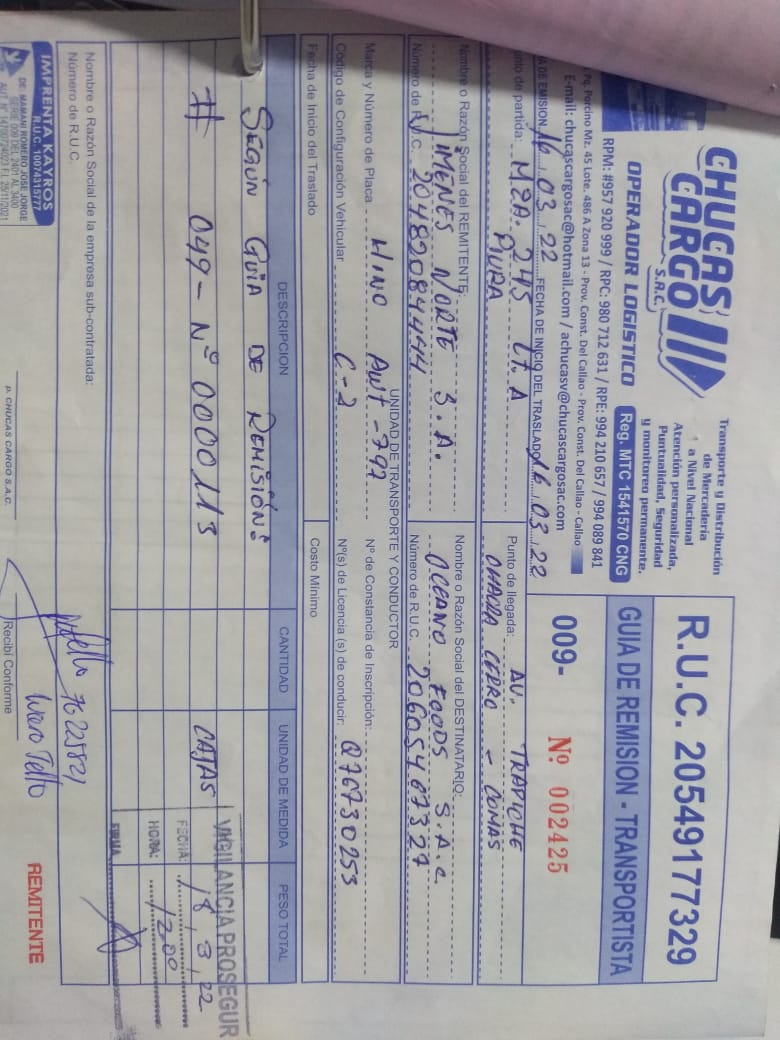 CHUCAS
CARGO
S.R.C.
OPERADOR LOGISTICO
Transporte y Distribución
de Mercaderia
a Nivel Nacional
Atención personalizada,
Puntualidad, Seguridad
y monitoreo permanente.
Reg. MTC 1541570 CNG
RPM: #957 920 999 / RPC: 980 712 631 / RPE: 994 210 657 / 994 089 841
Pq. Porcino Mz. 45 Lote. 486 A Zona 13 - Prov. Const. Del Callao - Prov. Const. Del Callao - Callao
E-mail: chucascargosac@hotmail.com / achucasv@chucascargosac.com
R.U.C. 20549177329
GUIA DE REMISION - TRANSPORTISTA
009- Nº 002425
A DE EMISION 16.03.22 FECHA DE INICIO DEL TRASLADO 16.03.22
nto de partida: MZA. 245 LT. A
PIURA
Punto de llegada: AV. TRAPICHE
CHACRA CERRO - COMAS
Nombre o Razón Social del REMITENTE:
JIMENES NORTE S.A.
Número de R.U.C. 20489084444
Nombre o Razón Social del DESTINATARIO:
OCEANO FOODS S.A.C.
Número de R.U.C. 20605467327
UNIDAD DE TRANSPORTE Y CONDUCTOR
Marca y Número de Placa HINO AWT-797
Nº de Constancia de Inscripción:
Código de Configuración Vehicular C-2
Nº(s) de Licencia (s) de conducir: Q76730253
Fecha de Inicio del Traslado
Costo Mínimo
DESCRIPCION CANTIDAD UNIDAD DE MEDIDA PESO TOTAL
SEGÚN GUÍA DE REMISIÓN:
# 049- Nº 0000113 CAJAS
VIGILANCIA PROSEGUR
FECHA: 18, 3, 22
HORA: 1200
FIRMA
Nombre o Razón Social de la empresa sub-contratada:
Número de R.U.C.
76225821
Tello
IMPRENTA KAYROS
R.U.C. 10074315777
DE: MAMANI ROMERO JOSE JORGE
SERIE 009 DEL 2401 AL 3400
P. CHUCAS CARGO S.A.C.
Recibí Conforme
REMITENTE